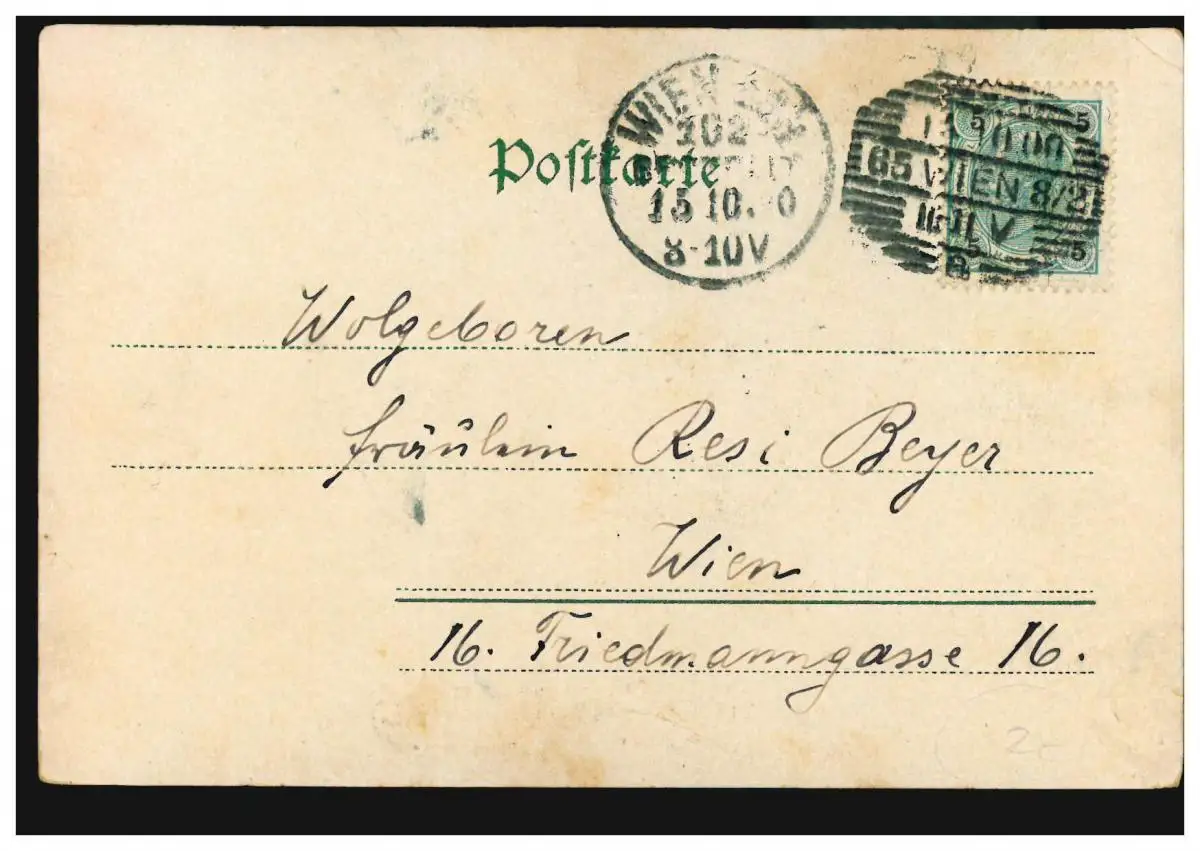 Postkarte
WIEN
102
15 10. 0
8-10V
5 5
13 10 00
65 WIEN 8/2
10-11 V
5 5
Wolgeboren
Fräulein Resi Beyer
Wien
16. Friedmanngasse 16.